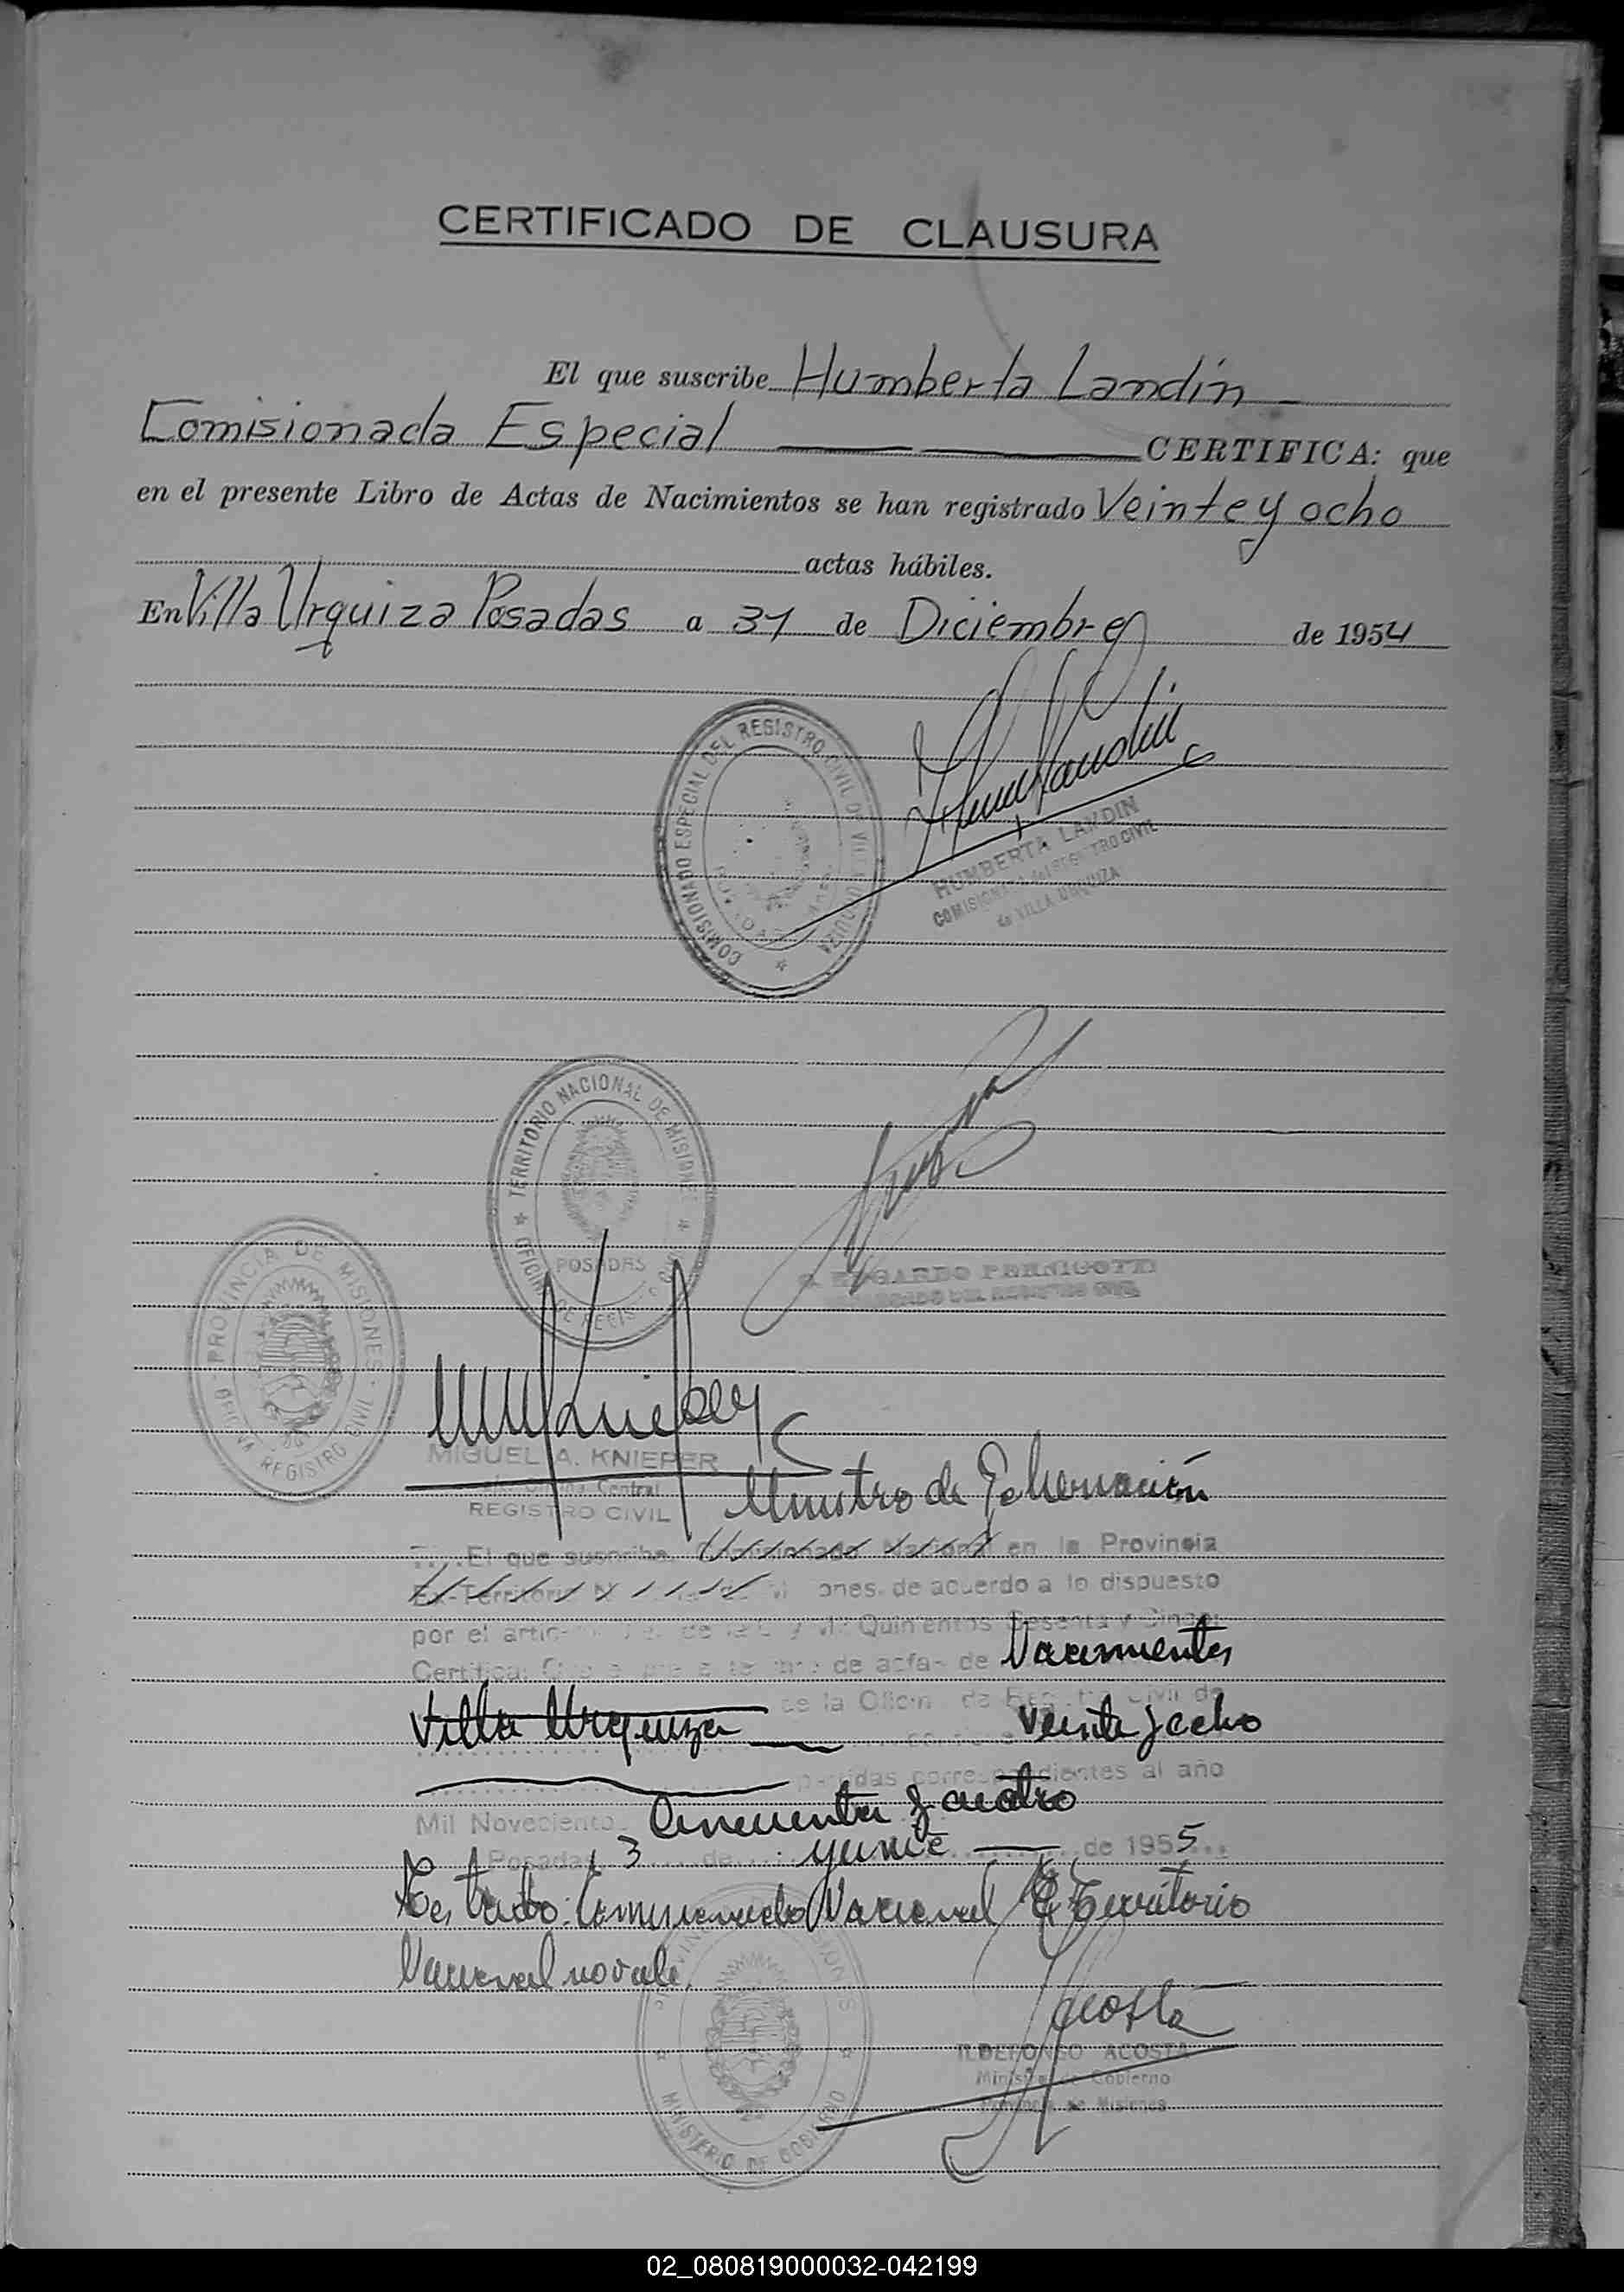 CERTIFICADO DE CLAUSURA
El que suscribe Humberta Landin
Comisionada Especial CERTIFICA: que
en el presente Libro de Actas de Nacimientos se han registrado Veinte y ocho
actas hábiles.
En Villa Urquiza Posadas a 31 de Diciembre de 1954
COMISIONADO ESPECIAL DEL REGISTRO CIVIL DE VILLA URQUIZA
HUMBERTA LANDIN
COMISIONADA del REGISTRO CIVIL
de VILLA URQUIZA
TERRITORIO NACIONAL DE MISIONES
POSADAS
EDGARDO PERNIGOTTI
DEL REGISTRO CIVIL
PROVINCIA DE MISIONES
OFICINA REGISTRO CIVIL
MIGUEL A. KNIEPER
Oficina Central
REGISTRO CIVIL
Ministro de Gobernación
El que suscribe, Comisionado Nacional en la Provincia
Ex-Territorio de acuerdo a lo dispuesto
por el Quinientos Sesenta y Cinco,
Certifica: de actas de Nacimientos
de la Oficina de Registro Civil de
Villa Urquiza Veinte y ocho
partidas correspondientes al año
Mil Novecientos Cincuenta y cuatro
Posadas, 3 de junio de 1955
Testado: Comisionado Nacional Ex Territorio
Nacional no vale.
Acosta
ILDEFONSO ACOSTA
Ministro de Gobierno
Provincia de Misiones
PROVINCIA DE MISIONES
MINISTERIO DE GOBIERNO
02_080819000032-042199